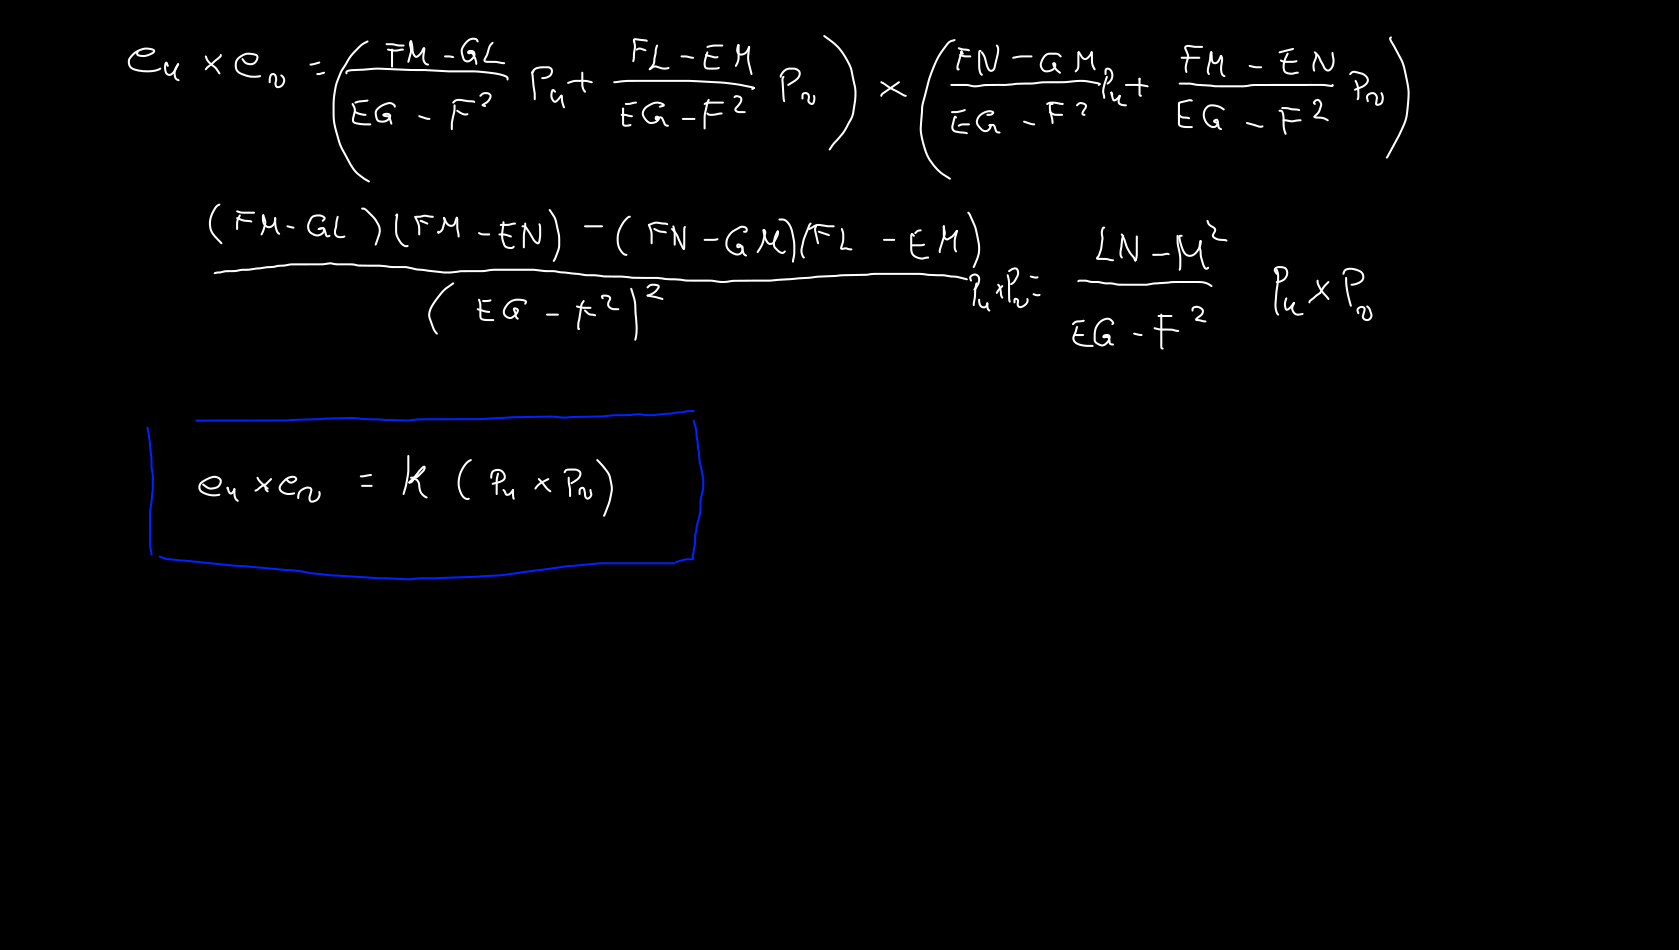 e_u × e_v = ( \frac{FM - GL}{EG - F^2} P_u + \frac{FL - EM}{EG - F^2} P_v ) × ( \frac{FN - GM}{EG - F^2} P_u + \frac{FM - EN}{EG - F^2} P_v )
\frac{(FM - GL)(FM - EN) - (FN - GM)(FL - EM)}{(EG - F^2)^2} P_u × P_v = \frac{LN - M^2}{EG - F^2} P_u × P_v
e_u × e_v = K ( P_u × P_v )